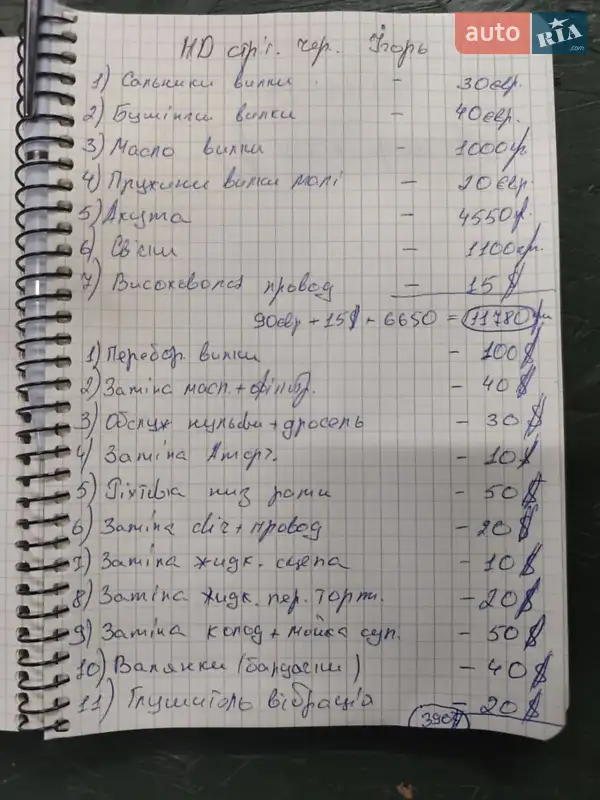 auto RIA .com
HD стріт. чер. Ігорь
1) Сальники вилки - 30євр.
2) Бушінги вилки - 40євр.
3) Масло вилки - 1000гр
4) Пружини вилки малі - 20євр.
5) Акума - 4550гр.
6) Свічки - 1100грн.
7) Високовольт провод - 15$
90євр + 15$ + 6650 = 11780грн
1) Перебор. вилки - 100$
2) Заміна масл. + фільтр. - 40$
3) Обслуж кульови + дросель - 30$
4) Заміна Аморт. - 10$
5) Ріхтовка низ рами - 50$
6) Заміна свіч + провод - 20$
7) Заміна жидк. сцепа - 10$
8) Заміна жидк. пер. торм. - 20$
9) Заміна колод + мойка суп. - 50$
10) Валянки (бардачки) - 40$
11) Глушитель вібрація - 20$
390$